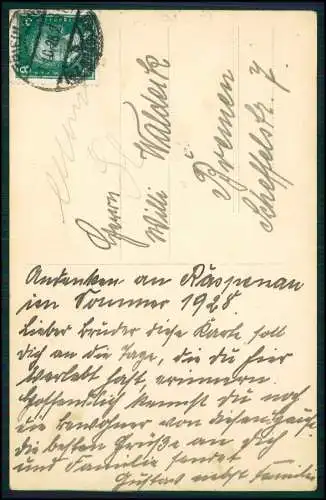 Herrn
Willi Walderk
Bremen
Scheffelstr. 7.
Andenken an Räspenau
im Sommer 1928.
Lieber Bruder diese Karte soll
dich an die Tage, die du hier
Verlebt hast erinnern.
Hoffentlich kennst du noch
die bewohner von diesen Hause
die besten Grüße an dich
und Familie sendet
Gustav nebst Familie